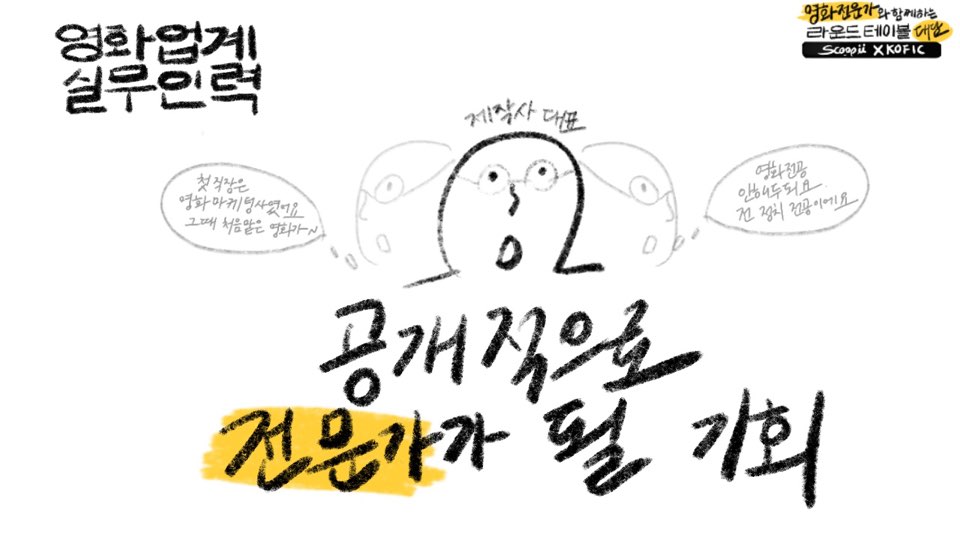 영화업계
실무인력
영화전문가와 함께하는
라운드테이블 대담
Scoopii X KOFIC
제작사 대표
첫 직장은
영화 마케팅사였어요
그때 처음 맡은 영화가~
영화전공
안해두되요
전 정치 전공이에요
공개적으로
전문가가 될 기회